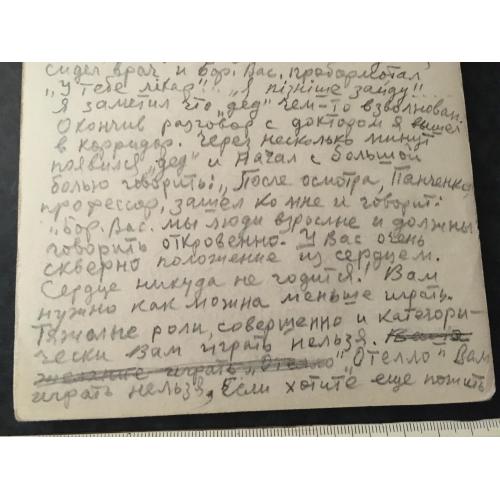 сидел врач и Бор. Вас. пробормотал,
„У тебе лікар!" „Я пізніше зайду"
Я заметил что „дед" чем-то взволнован.
Окончив разговор с доктором я вышел
в корридор. Через несколько минут
появился „дед" и начал с большой
болью говорить: „После осмотра, Панченко,
профессор, зашел ко мне и говорит:
„Бор. Вас. мы люди взрослые и должны
говорить откровенно. У Вас очень
скверно положение из сердцем.
Сердце никуда не годится! Вам
нужно как можна меньше играть.
Тяжолые роли совершенно и категори-
чески Вам играть нельзя. Ваше
желание играть „Отелло" „Отелло" Вам
играть нельзя, Если хотите еще пожить